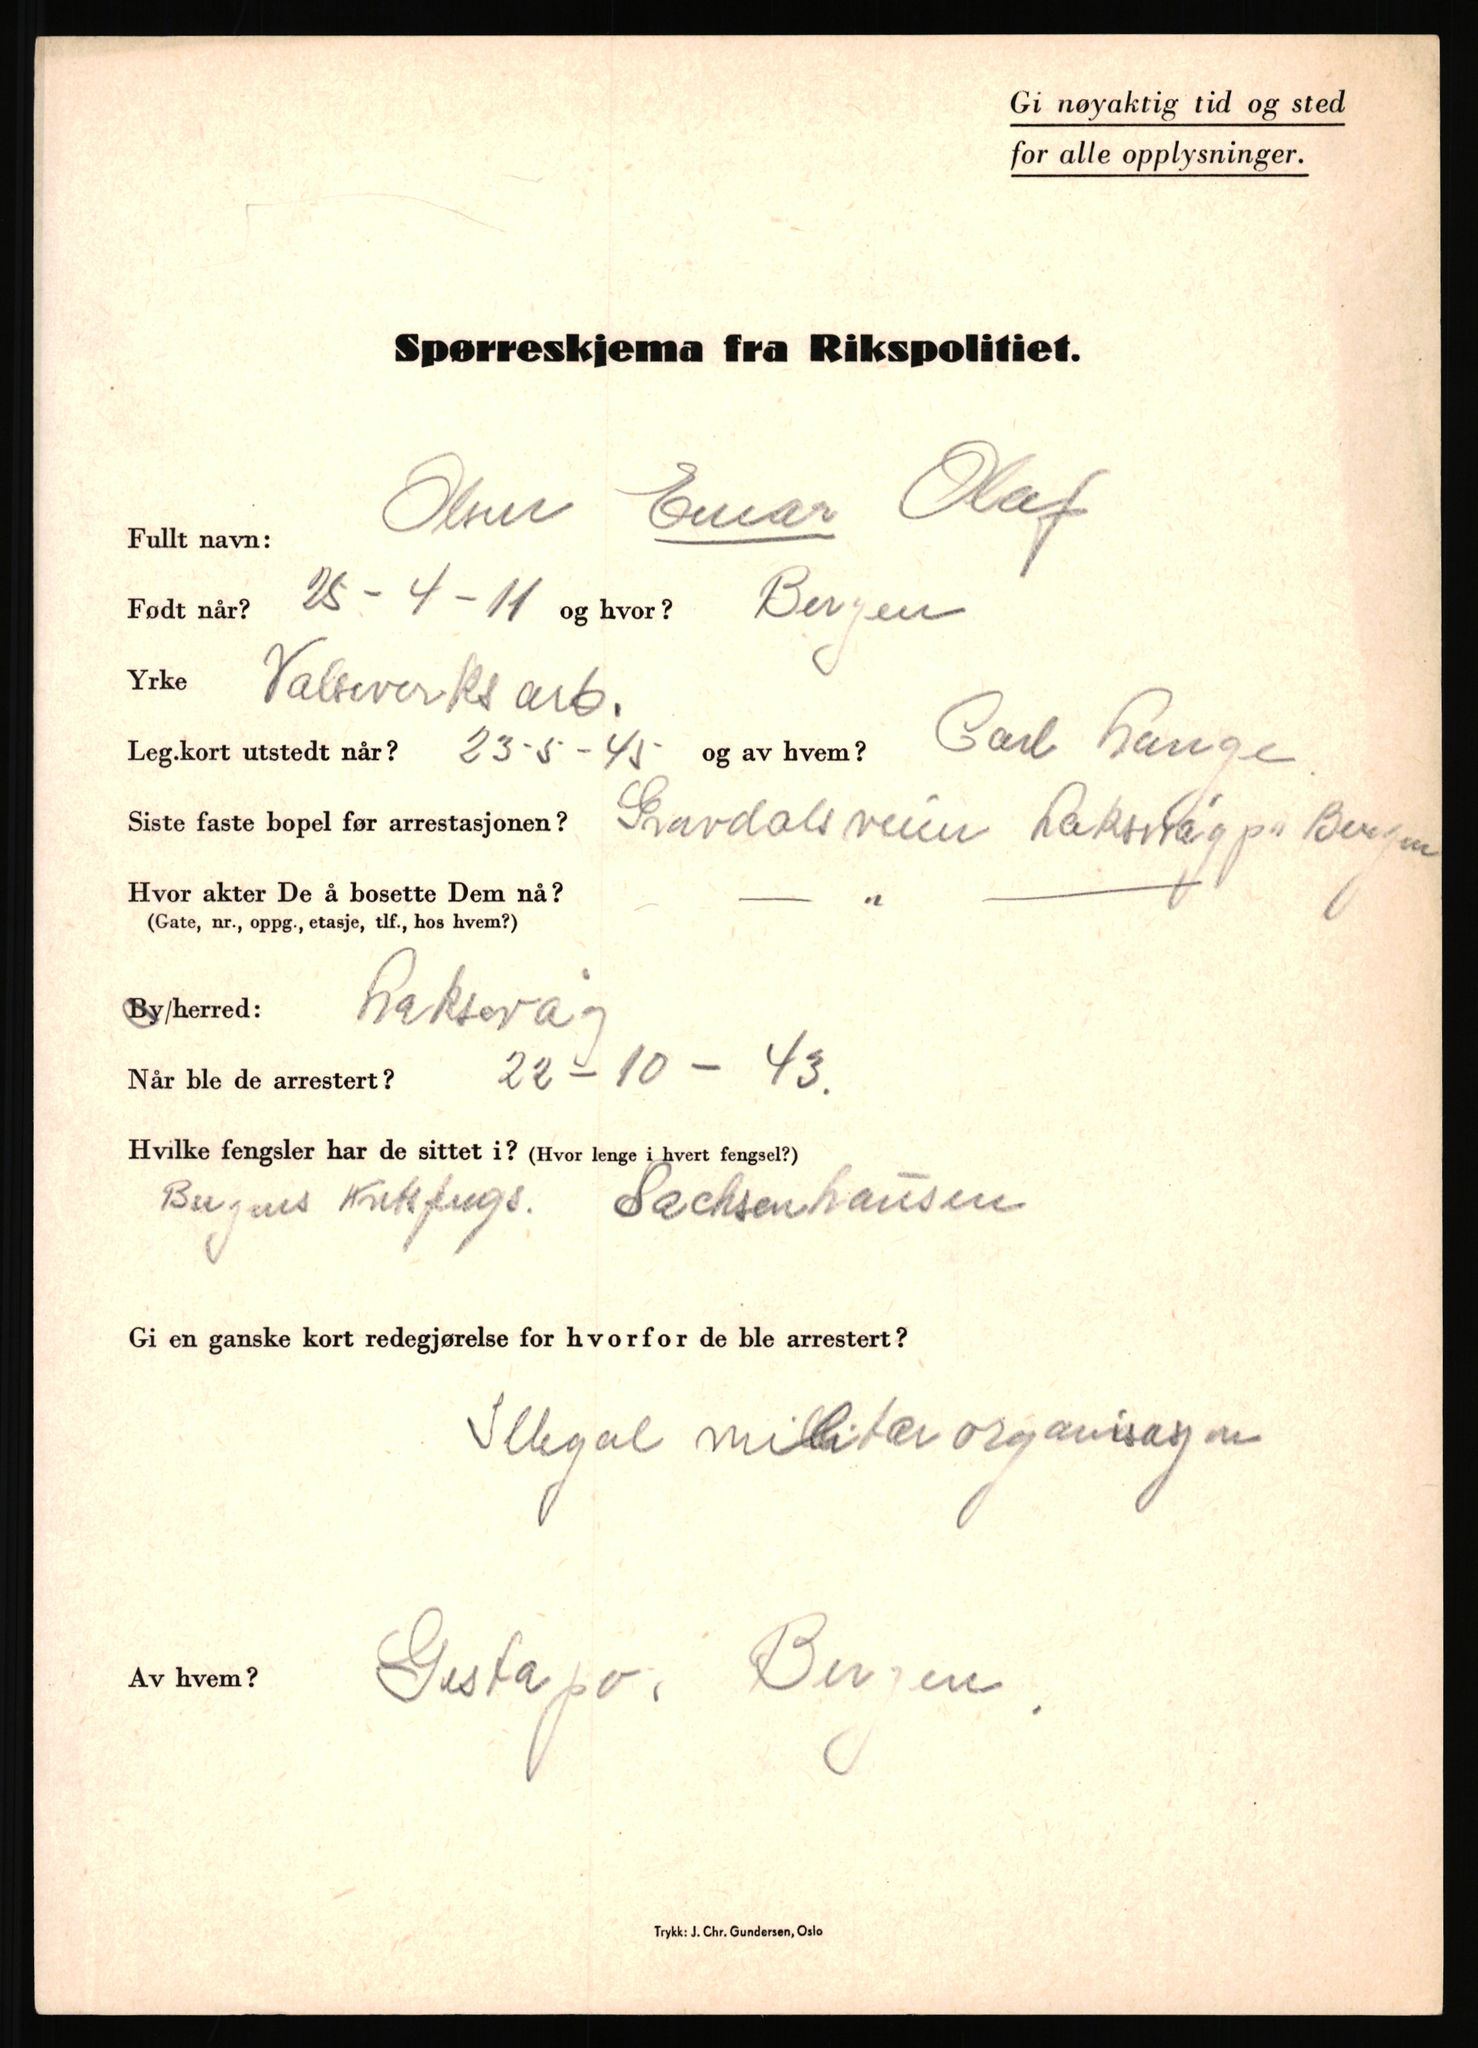 Gi nøyaktig tid og sted
for alle opplysninger.
Spørreskjema fra Rikspolitiet.
Fullt navn: Olsen Einar Olaf
Født når? 25-4-11 og hvor? Bergen
Yrke Valseverksarb.
Leg.kort utstedt når? 23-5-45 og av hvem? Carl Lange
Siste faste bopel før arrestasjonen? Gravdalsveien Laksevåg pr Bergen
Hvor akter De å bosette Dem nå? — " —
(Gate, nr., oppg., etasje, tlf., hos hvem?)
By/herred: Laksevåg
Når ble de arrestert? 22-10-43.
Hvilke fengsler har de sittet i? (Hvor lenge i hvert fengsel?)
Bergens Kretsfengs. Sachsenhausen
Gi en ganske kort redegjørelse for hvorfor de ble arrestert?
Illegal militær organisasjon
Av hvem? Gestapo. Bergen.
Trykk: J. Chr. Gundersen, Oslo